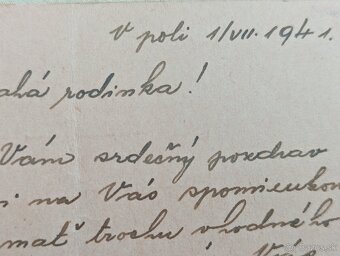 V poli 1/VII. 1941.
ahá rodinka!
Vám srdečný pozdrav
i na Vás spomienkou
mať trochu vhodného
Vás